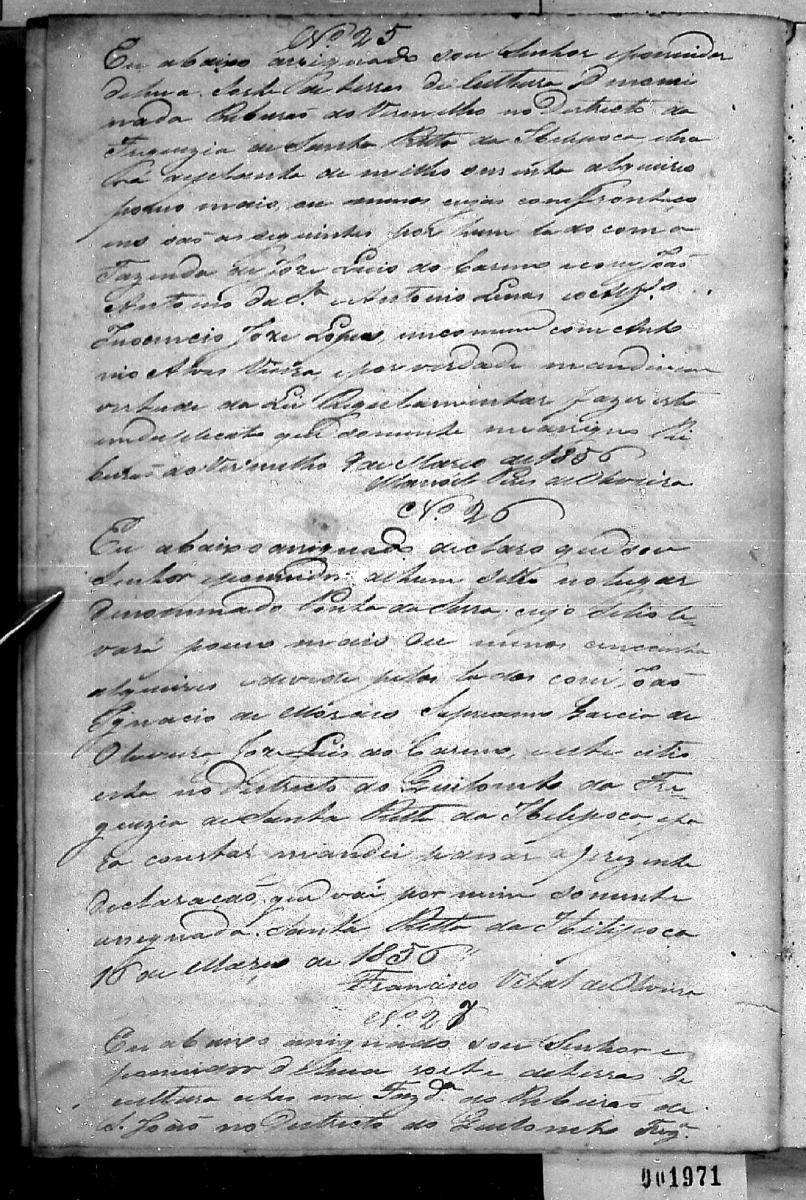 No. 25
Eu abaixo assignado sou Senhor epossuidor
dehua Sorte de terras de Cultura D nomi
nada Ribeirão do Vermelho no Districto da
Freguezia de Santa Ritta da Ibitipoca, e leva
rá deplanta de milho oitenta alqueires
pouco mais, ou menos cujas comfrontaço
ens são as seguintes por hum lado com a
Fazenda de Joze Luis do Carmo e com João
Antonio da S.ª e Antonio Luis eo Alf.s
Inocencio Joze Lopes, em comum com Anto
nio Alves Vieira, e por verdade mandei em
vertude da Lei Regulamentar fazer este
em duplicata que somente me assigno Ri
beirão do Vermelho 7 de Março de 1856
Manoel Pires de Oliveira
No. 26
Eu abaixo assignado declaro que sou
Senhor epossuidor dehum Sitio no lugar
denominado Ponta da Serra, cujo Sitio le-
vará pouco mais ou menos cincoenta
alqueires e devide pelos lados com João
Ignacio de Moraes Sipriano Garcia de
Oliveira Joze Luis do Carmo, e este citio
esta no Districto do Quilombo da Fre-
guezia de Santa Ritta da Ibitipoca, epa
ra constar mandei passar a prezente
declaracaõ, que vai por mim somente
assignada. Santa Ritta da Ibitipoca
16 de Março de 1856
Francisco Vital de Oliveira
No. 27
Eu abaixo assignado sou Senhor e
possuidor dehua sorte deterras de
cultura citas na Fazd.ª do Ribeirão de
S. João no Districto do Quilombo Freg.ª
001971